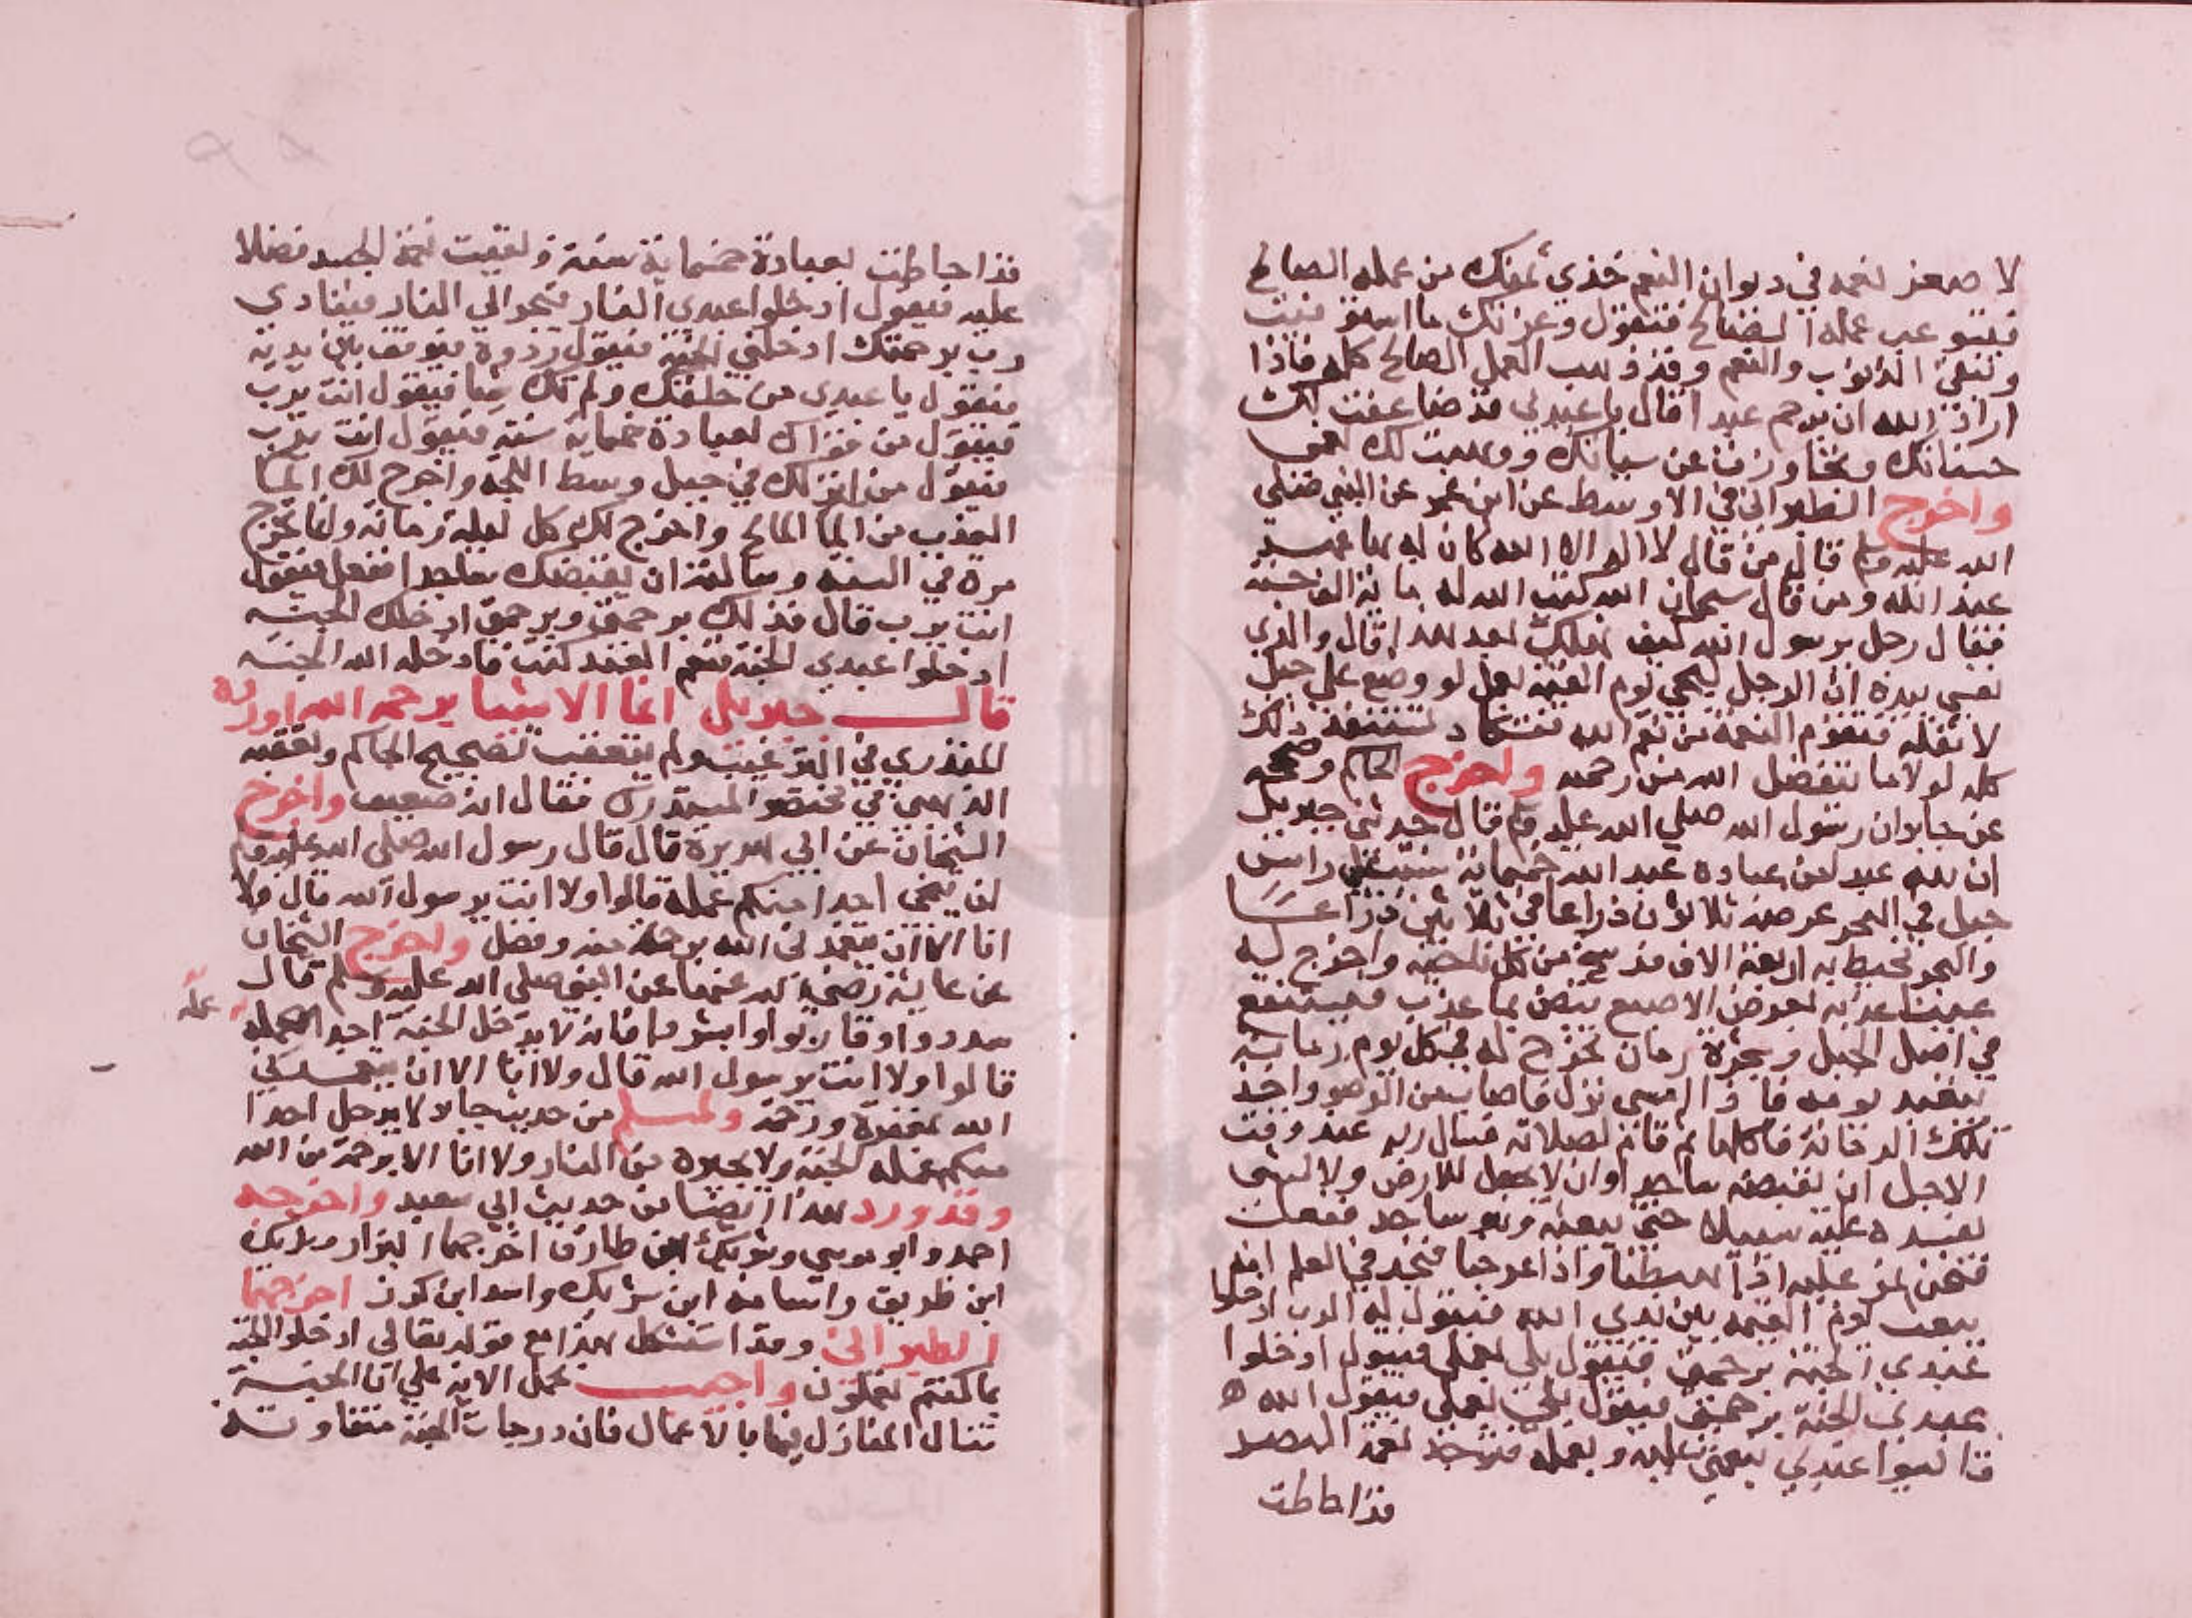 لا صغر نعمه في ديوان النعم خذي ثمنك من عمله الصالح
فتستوعب عمله الصالح فتقول وعزتك ما استوفيت
وتبقى الذنوب والنعم وقد ذهب العمل الصالح كله فاذا
اراد الله ان يرحم عبدا قال يا عبدي قد ضاعفت لك
حسناتك وتجاوزت عن سياتك ووهبت لك نعمي
واخرج الطبراني في الاوسط عن ابن عمر عن النبي صلي
الله عليه وسلم قال من قال لا اله الا الله كان له بها عهد
عند الله ومن قال سبحان الله كتب الله له ماية الف حسنة
فقال رجل يرسول الله كيف نهلك بعد هذا قال والذي
نفسي بيده ان الرجل ليجي يوم القيمة بعمل لو وضع علي جبل
لا ثقله فتقوم النعمة من نعم الله فتكاد تستنفد ذلك
كله لولا ما يتفضل الله من رحمته واخرج الحاكم وصححه
عن جابر ان رسول الله صلي الله عليه وسلم قال حدثني جبريل
ان لله عبد من عباده عبد الله خمسماية سنة علي راس
جبل في البحر عرضه ثلاثون ذراعا في ثلاثين ذراعا
والبحر محيط به اربعة الاف فرسخ من كل ناحية واخرج له
عينا عذبه بعرض الاصبع تبض بما عذب فيستنقع
في اصل الجبل وشجرة رمان تخرج له في كل يوم رمانة
يتعبد يومه فاذا امسي نزل فاصاب من الوضو واخذ
تلك الرمانة فاكلها ثم قام لصلاته فسال ربه عند وقت
الاجل ان يقبضه ساجدا وان لا يجعل للارض ولا لشي
يفسده عليه سبيلا حتي يبعثه وهو ساجد ففعلت
فنحن نمر عليه اذا هبطنا واذا عرجنا فنجد في العلم انه
يبعث يوم القيمة بين يدي الله فيقول له الرب ادخلوا
عبدي الجنة برحمتي فيقول بلي بعملي فيقول ادخلوا
عبدي الجنة برحمتي فيقول بلي بعملي فيقول الله
قايسوا عبدي بنعمتي عليه وبعمله فتوجد نعمة البصر
قد احاطت
قد احاطت بعبادة خمسماية سنة وبقيت نعمة الجسد فضلا
عليه فيقول ادخلوا عبدي النار فيجر الي النار فينادي
رب برحمتك ادخلني الجنة فيقول ردوه فيوقف بين يديه
فيقول يا عبدي من خلقك ولم تك شيا فيقول انت يرب
فيقول من قواك لعبادة خمسماية سنة فيقول انت يرب
فيقول من انزلك في جبل وسط اللجة واخرج لك الما
العذب من الما المالح واخرج لك كل ليلة رمانة وانما تخرج
مرة في السنة وسالته ان يقبضك ساجدا ففعل فيقول
انت يرب قال فذلك برحمتي وبرحمتي ادخلك الجنة
ادخلوا عبدي الجنة فنعم العبد كنت فادخله الله الجنة
قال جبريل انما الاشيا برحمة الله اورده
المنذري في الترغيب ولم يتعقب تصحيح الحاكم وتعقبه
الذهبي في مختصر المستدرك فقال انه ضعيف واخرج
الشيخان عن ابي هريرة قال قال رسول الله صلي الله عليه وسلم
لن ينجي احدا منكم عمله قالوا ولا انت يرسول الله قال ولا
انا الا ان يتغمدني الله برحمة منه وفضل واخرج الشيخان
عن عايشة رضي الله عنها عن النبي صلي الله عليه وسلم قال
سددوا وقاربوا وابشروا فانه لا يدخل الجنة احد عمله
قالوا ولا انت يرسول الله قال ولا انا الا ان يتغمدني
الله بمغفرة ورحمة ولمسلم من حديث جابر لا يدخل احدا
منكم عمله الجنة ولا يجيره من النار ولا انا الا برحمة من الله
وقد ورد هذا ايضا من حديث ابي سعيد واخرجه
احمد وابو موسي وشريك ابن طارق اخرجهما البزار وشريك
ابن طريف واسامة ابن شريك واسد ابن كرز اخرجهما
الطبراني وقد استشكل هذا مع قوله تعالي ادخلوا الجنة
بما كنتم تعملون واجيب بحمل الاية علي ان الجنة
تنال المنازل فيها بالاعمال فان درجات الجنة متفاوته